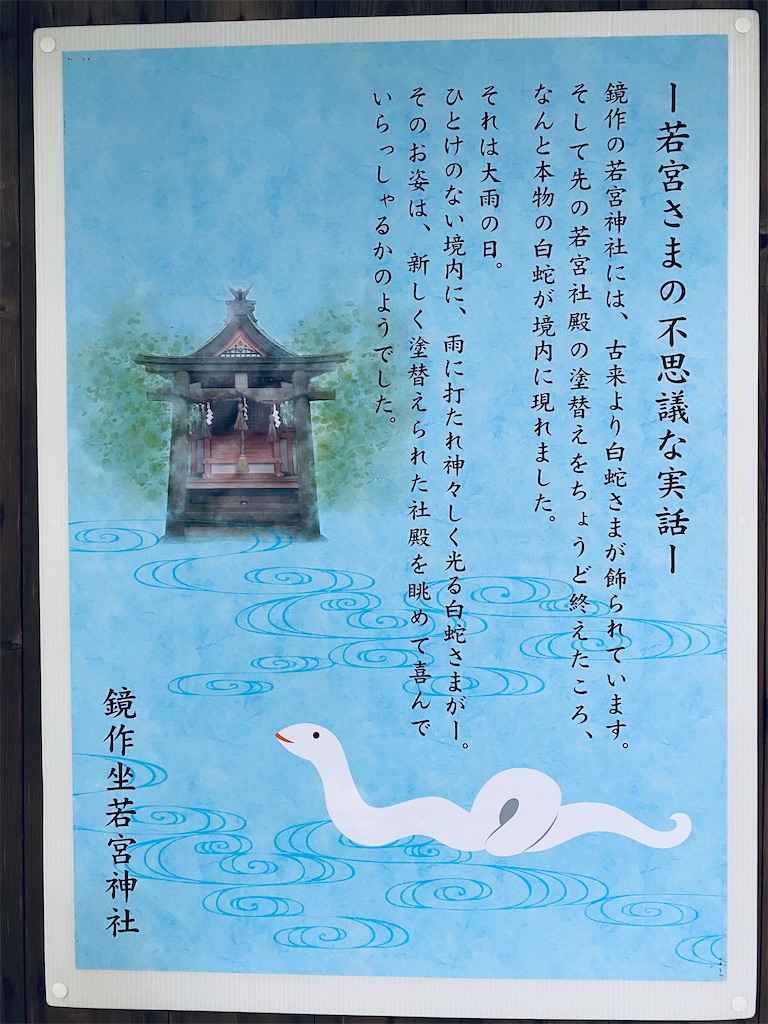 ー若宮さまの不思議な実話ー
鏡作の若宮神社には、古来より白蛇さまが飾られています。
そして先の若宮社殿の塗替えをちょうど終えたころ、
なんと本物の白蛇が境内に現れました。
それは大雨の日。
ひとけのない境内に、雨に打たれ神々しく光る白蛇さまがー。
そのお姿は、新しく塗替えられた社殿を眺めて喜んで
いらっしゃるかのようでした。
鏡作坐若宮神社